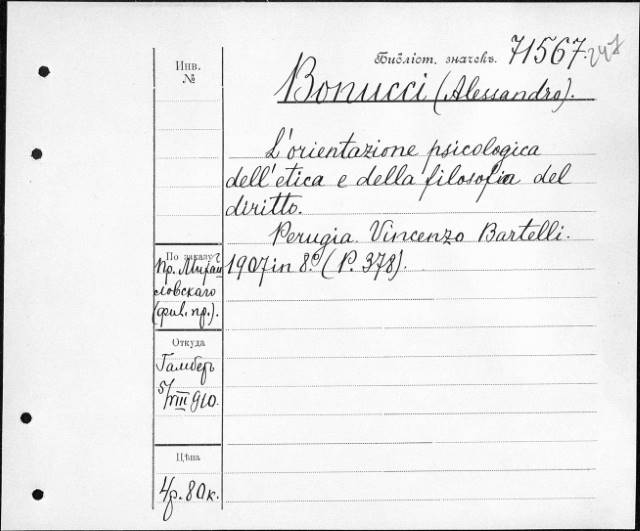 Инв.
№
Библіот. значекъ. 71567.
Bonucci (Alessandro).
L'orientazione psicologica
dell'etica e della filosofia del
diritto.
Perugia. Vincenzo Bartelli.
1907 in 8.º (P. 378).
По заказу
пр. Михай
ловскаго
(фил. пр.).
Откуда
Гамберъ
5/VIII 910.
Цѣна
4р. 80к.